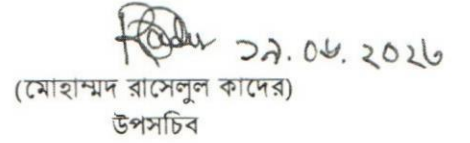 ১৯.০৬.২০২৬
(মোহাম্মদ রাসেলুল কাদের)
উপসচিব